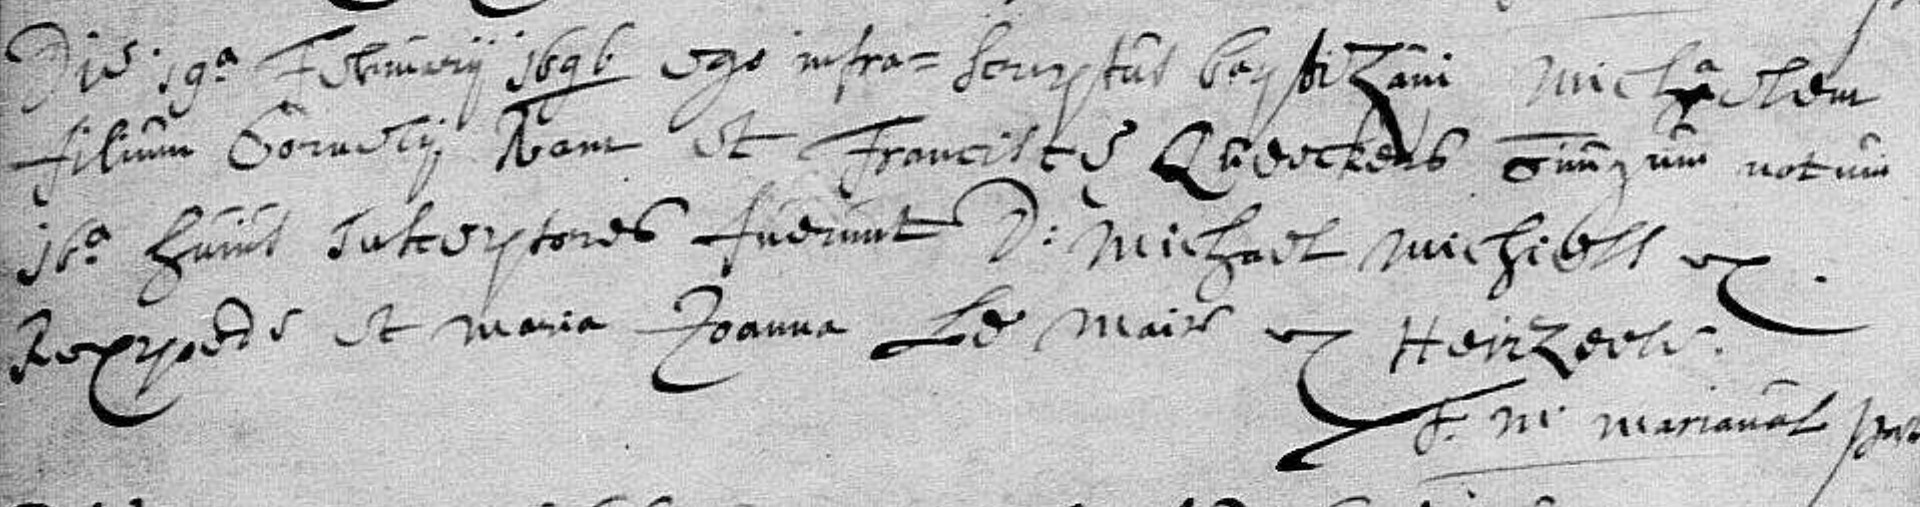 Die 19a Februarij 1696 ego infra= scriptus baptizavi Michaelem
filium Cornelij Ram et Franciscæ Queeckens coniugum natum
16a huius susceptores fuerunt D: Michael Michiels ex
Rexpoede et maria Joanna Le Maire ex Herzeele.
F. M. marianus